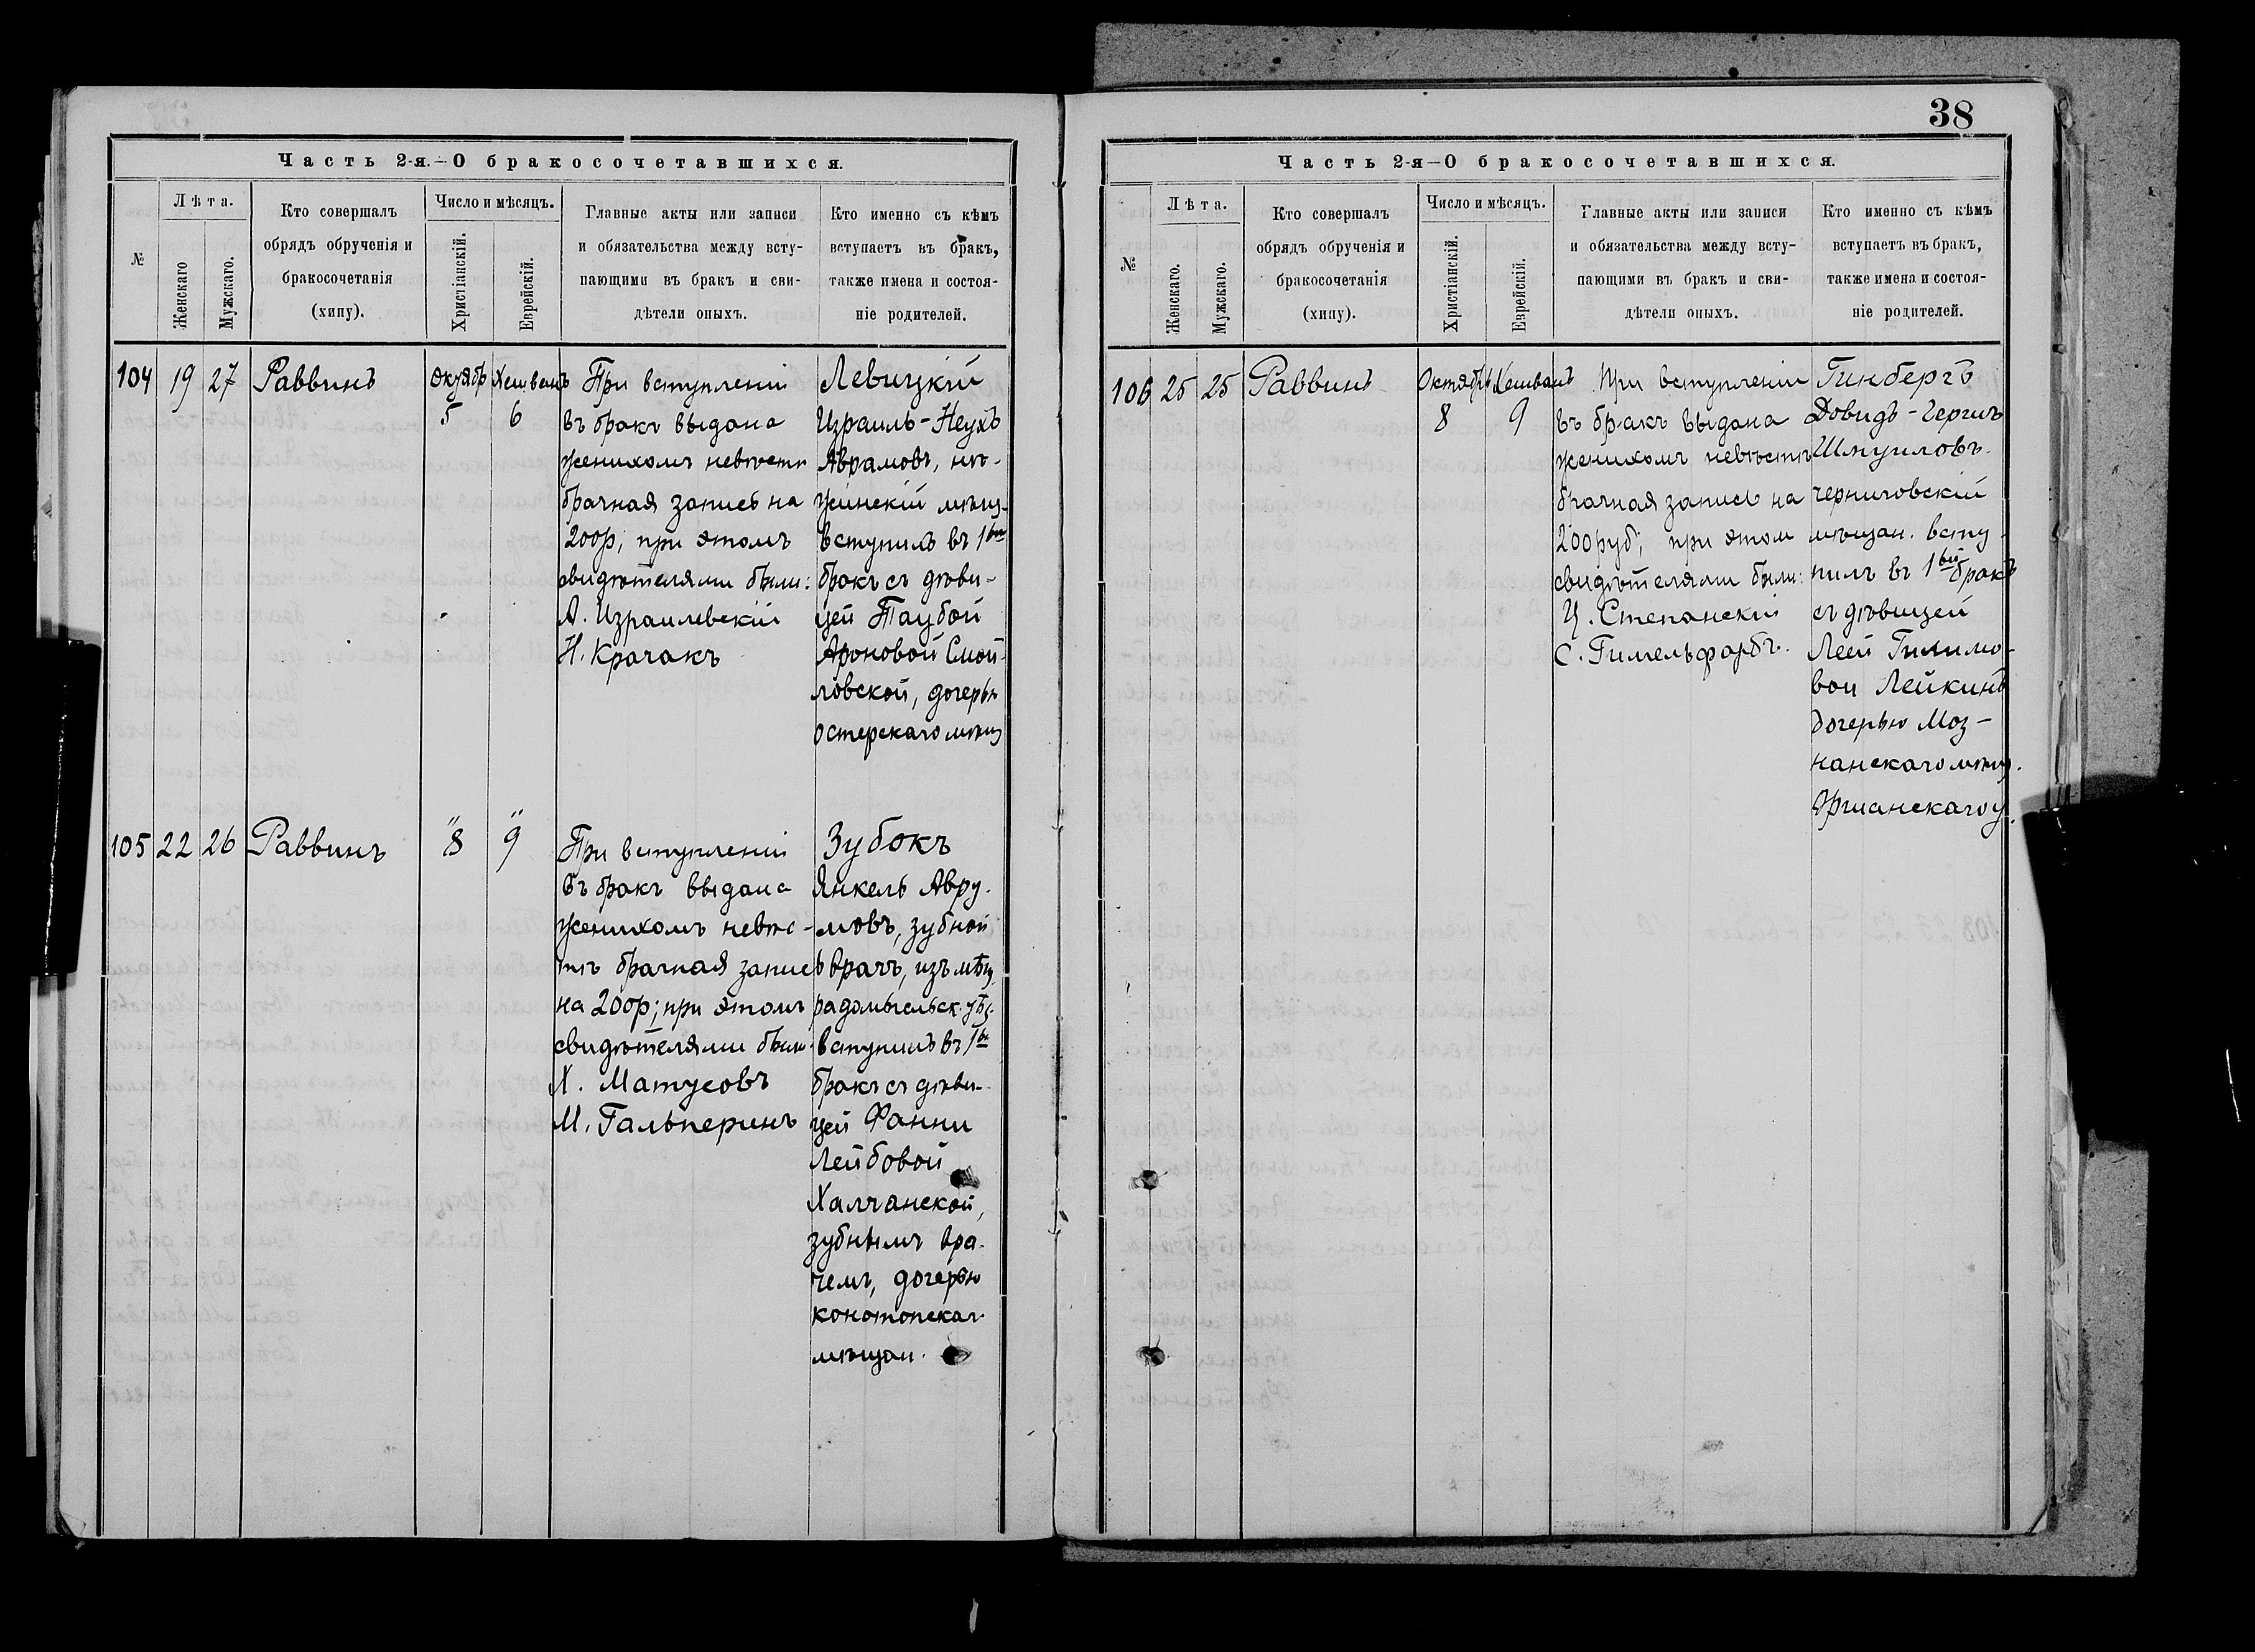 Часть 2-я.—О бракосочетавшихся.
№
Лѣта.
Женскаго
Мужскаго.
Кто совершалъ
обрядъ обрученія и
бракосочетанія
(хипу).
Число и мѣсяцъ.
Христіанскій.
Еврейскій.
Главные акты или записи
и обязательства между всту-
пающими въ бракъ и сви-
дѣтели оныхъ.
Кто именно съ кѣмъ
вступаетъ въ бракъ,
также имена и состоя-
ніе родителей.
104 19 27 Раввинъ
Октябр
5
Хешванъ
6
При вступленіи
въ бракъ выдана
женихомъ невѣсти
брачная запись на
200р; при этомъ
свидѣтелями были:
А. Израилевскій
Н. Крачакъ
Левицкій
Израиль-Неухъ
Аврамовъ, нѣ-
жинскій мѣщ.
вступилъ въ 1ый
бракъ съ дѣви-
цей Таубой
Ароновой Смой-
ловской, дочерью
остерскаго мѣщ
105 22 26 Раввинъ
" 8
" 9
При вступленіи
въ бракъ выдана
женихомъ невѣс-
тѣ брачная запись
на 200р; при этомъ
свидѣтелями были
Х. Матусовъ
М. Гальперинъ
Зубокъ
Янкель Авру-
мовъ, зубной
врачъ, изъ мѣщ.
радомысльск. уѣз.
вступилъ въ 1ый
бракъ съ дѣви-
цей Фанни
Лейбовой
Халчанской,
зубнымъ вра-
чемъ, дочерью
конотопскаг
мѣщан.
38
Часть 2-я—О бракосочетавшихся.
№
Лѣта.
Женскаго.
Мужскаго.
Кто совершалъ
обрядъ обрученія и
бракосочетанія
(хипу).
Число и мѣсяцъ.
Христіанскій.
Еврейскій.
Главные акты или записи
и обязательства между всту-
пающими въ бракъ и сви-
дѣтели оныхъ.
Кто именно съ кѣмъ
вступаетъ въ бракъ,
также имена и состоя-
ніе родителей.
106 25 25 Раввинъ
Октябрь
8
Хешванъ
9
При вступленіи
въ бракъ выдана
женихомъ невѣстѣ
брачная запись на
200руб; при этом
свидѣтелями были:
Ц. Степанскій
С. Гимельфарбъ.
Гинбергъ
Довидъ-Герш
Шмуиловъ.
черниговскій
мѣщан. всту-
пилъ въ 1ый бракъ
съ дѣвицей
Леей Гилимо-
вой Лейкинъ
дочерью Моз-
нанскаго мѣщ.
Ошманскаго у.